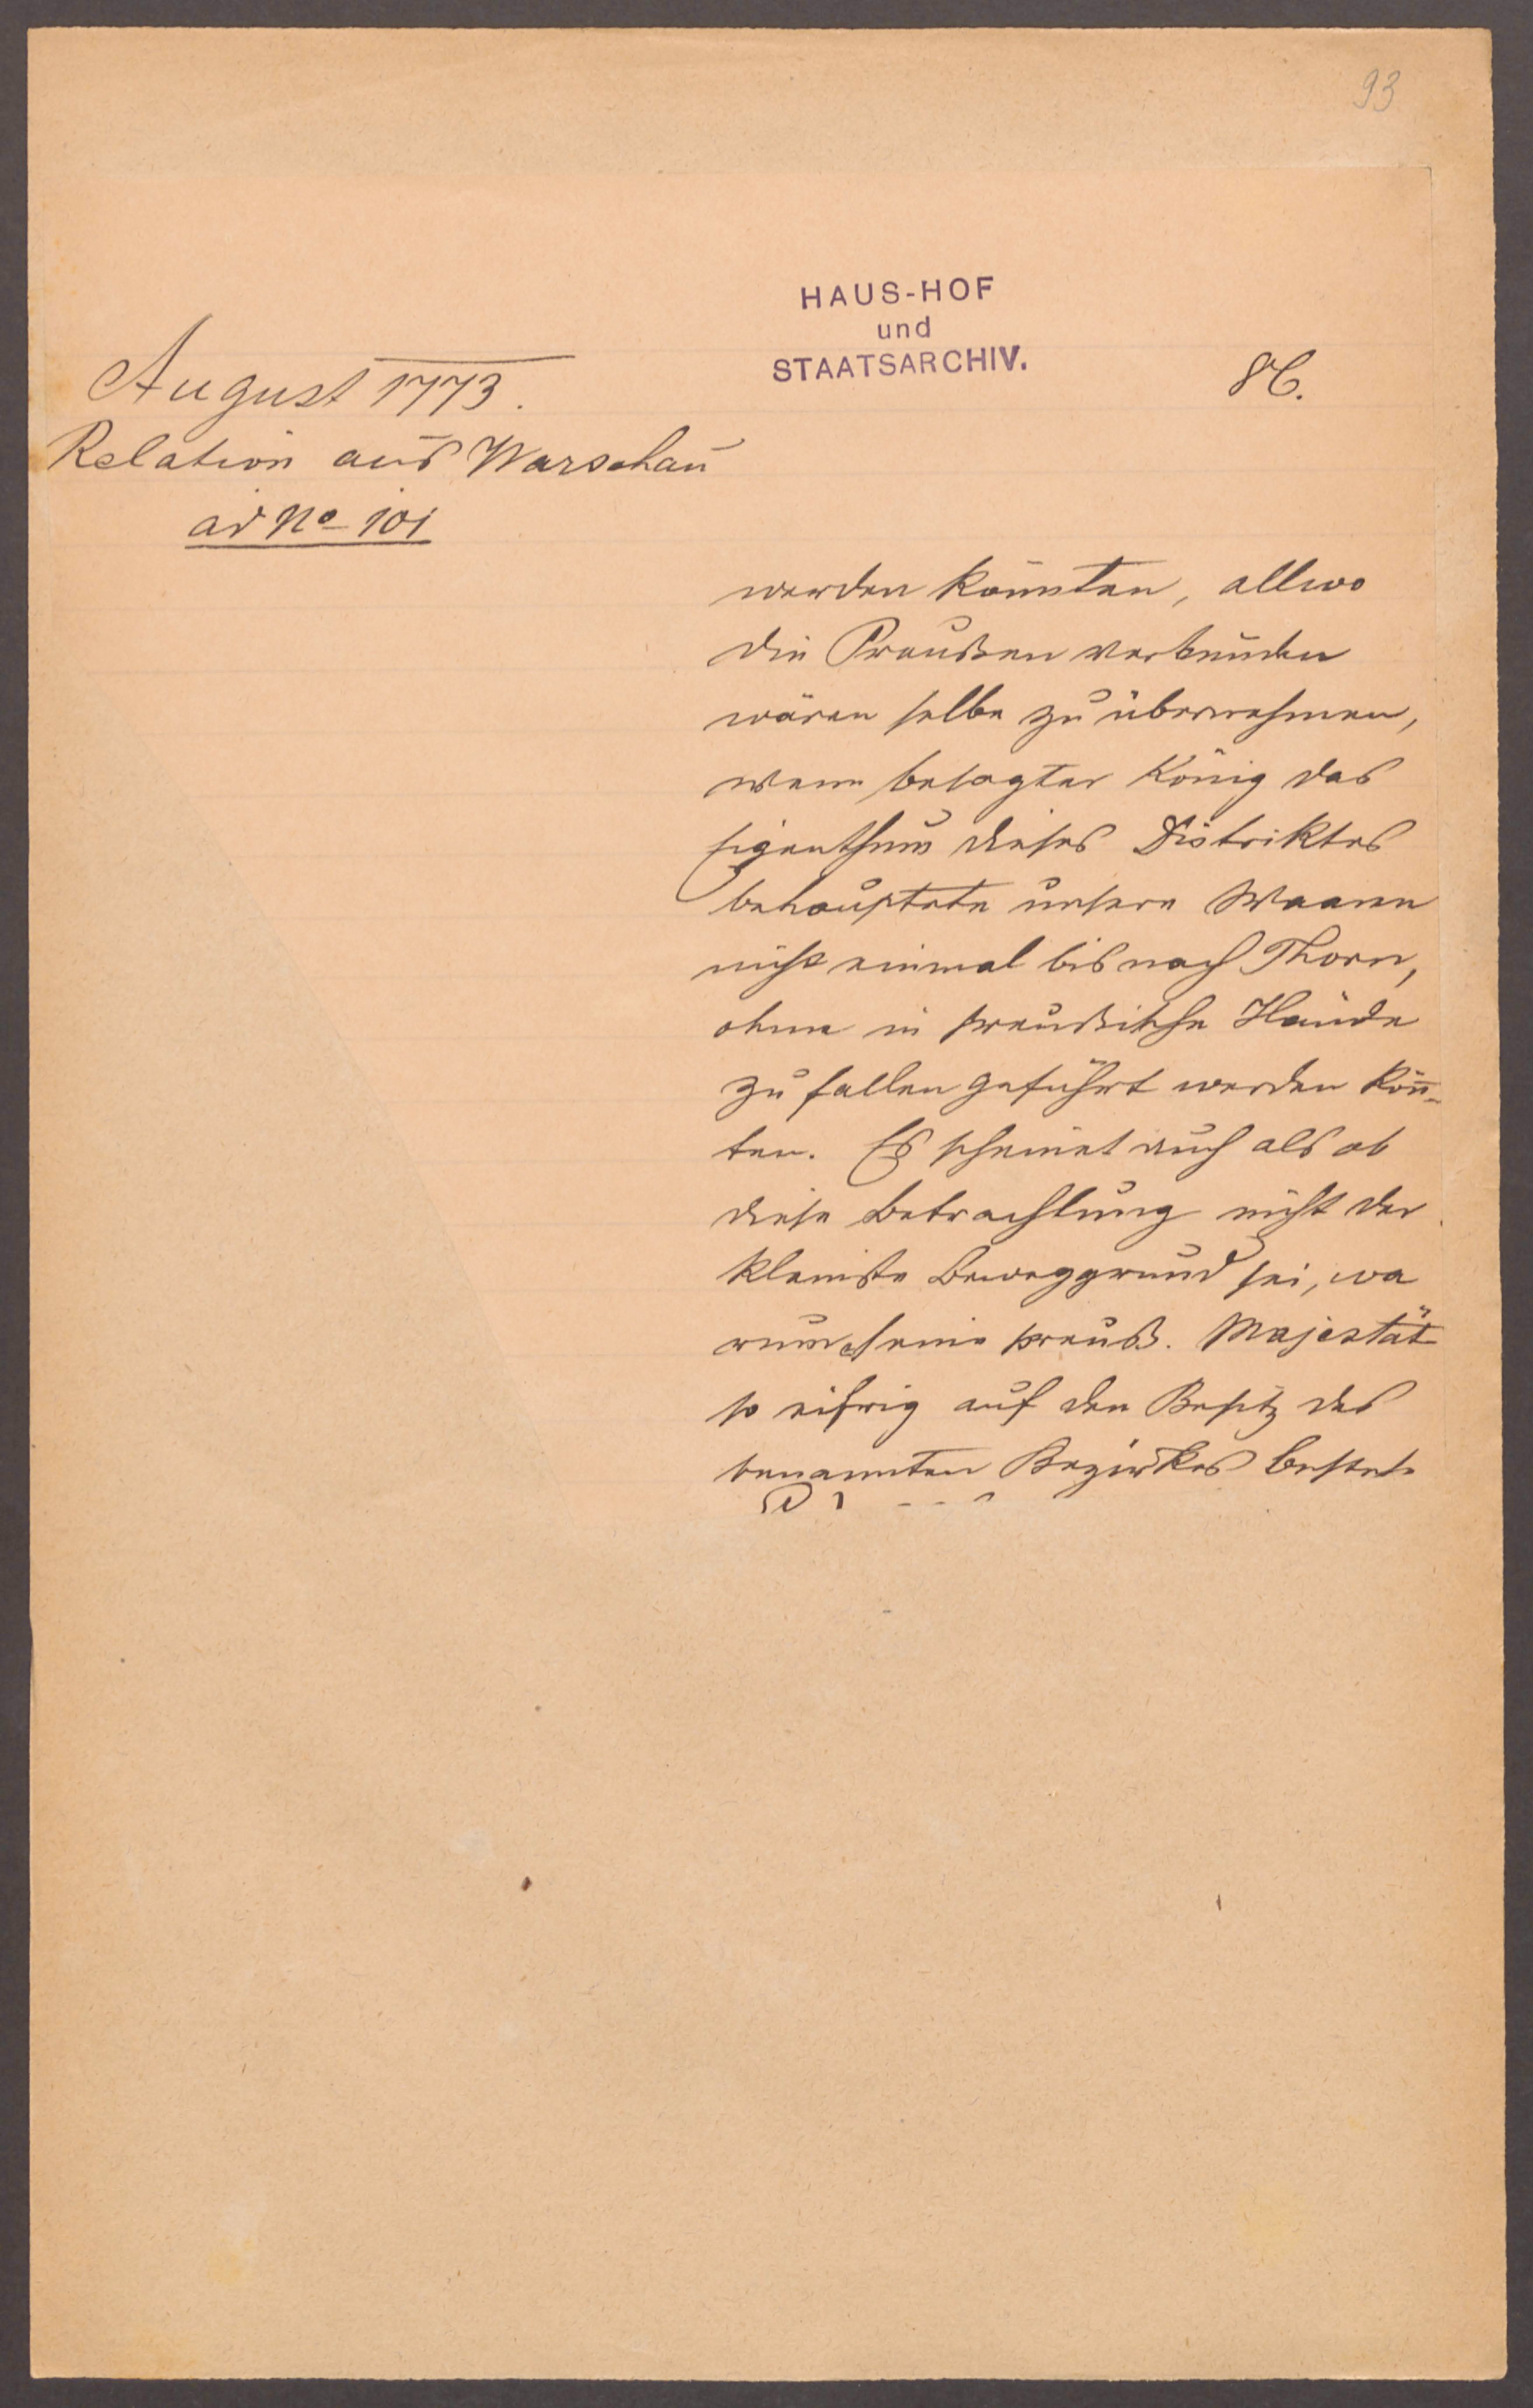 93
HAUS-HOF
und
STAATSARCHIV.
86.
August 1773.
Relation aus Warschau
ad No 101
werden könnten, allwo
die Preußen verbunden
wären selbe zu übernehmen,
wenn besagter König das
Eigenthum dieses Distriktes
behauptete unsere Waaren
nicht einmal bis nach Thorn,
ohne in preußische Hände
zu fallen geführt werden kön̄-
ten. Es scheinet auch als ob
diese Betrachtung nicht der
kleinste Beweggrund sei, wa
rum seine preuß. Majestät
so eifrig auf den Besitz des
benannten Bezirkes bestehe